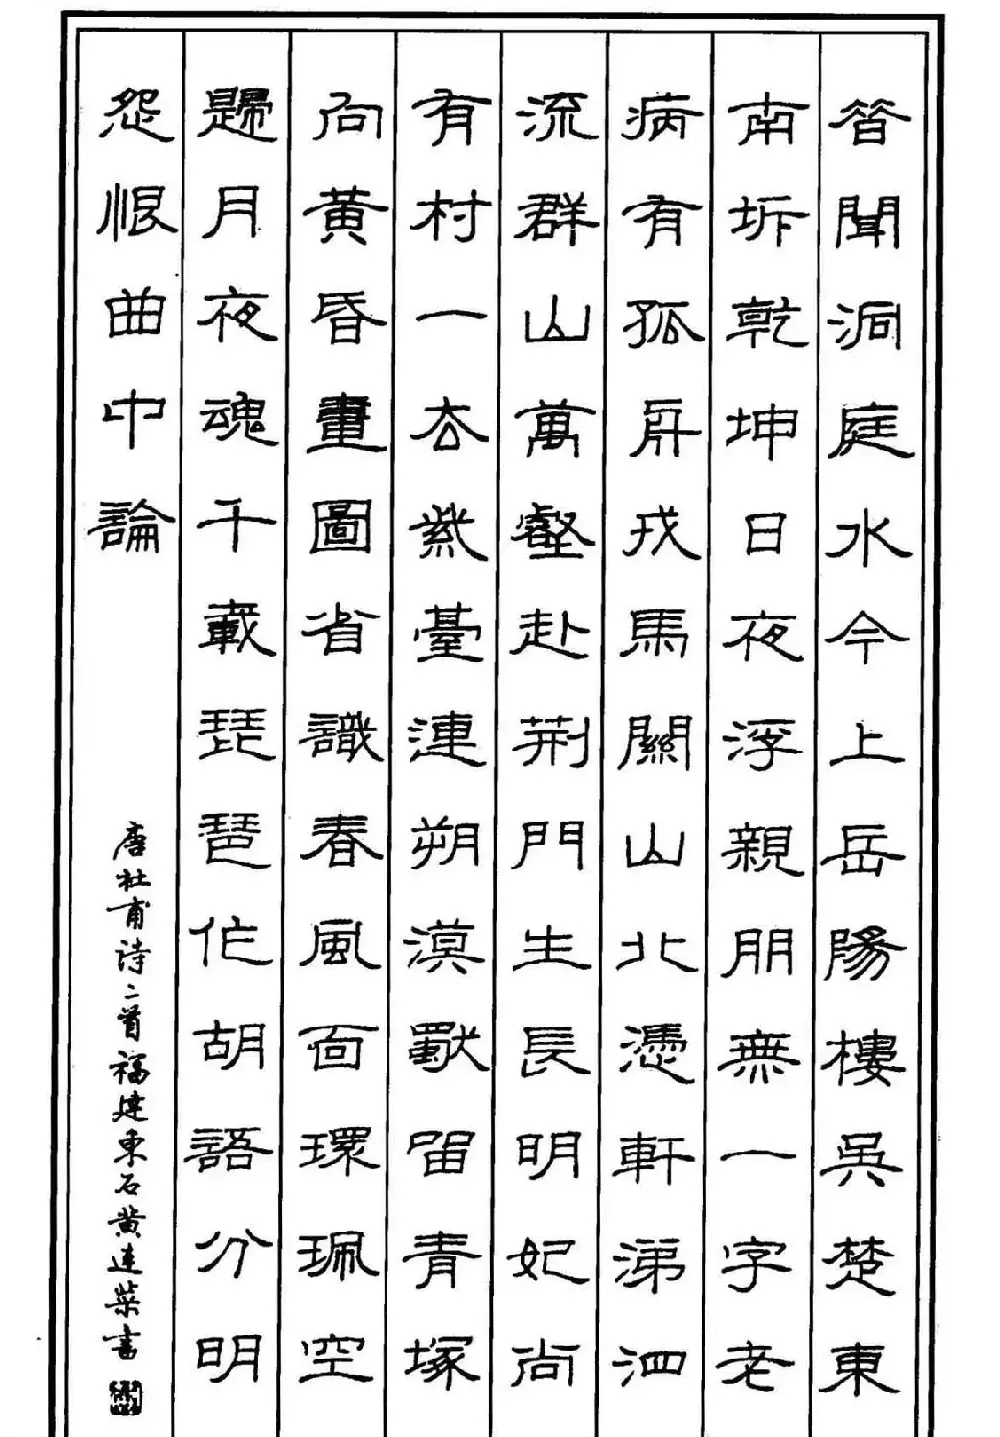 昔聞洞庭水今上岳陽樓吳楚東
南坼乾坤日夜浮親朋無一字老
病有孤舟戎馬關山北憑軒涕泗
流群山萬壑赴荆門生長明妃尚
有村一去紫臺連朔漠獨留青塚
向黄昏畫圖省識春風面環珮空
歸月夜魂千載琵琶作胡語分明
怨恨曲中論
唐杜甫诗二首福建東石黄連榮書